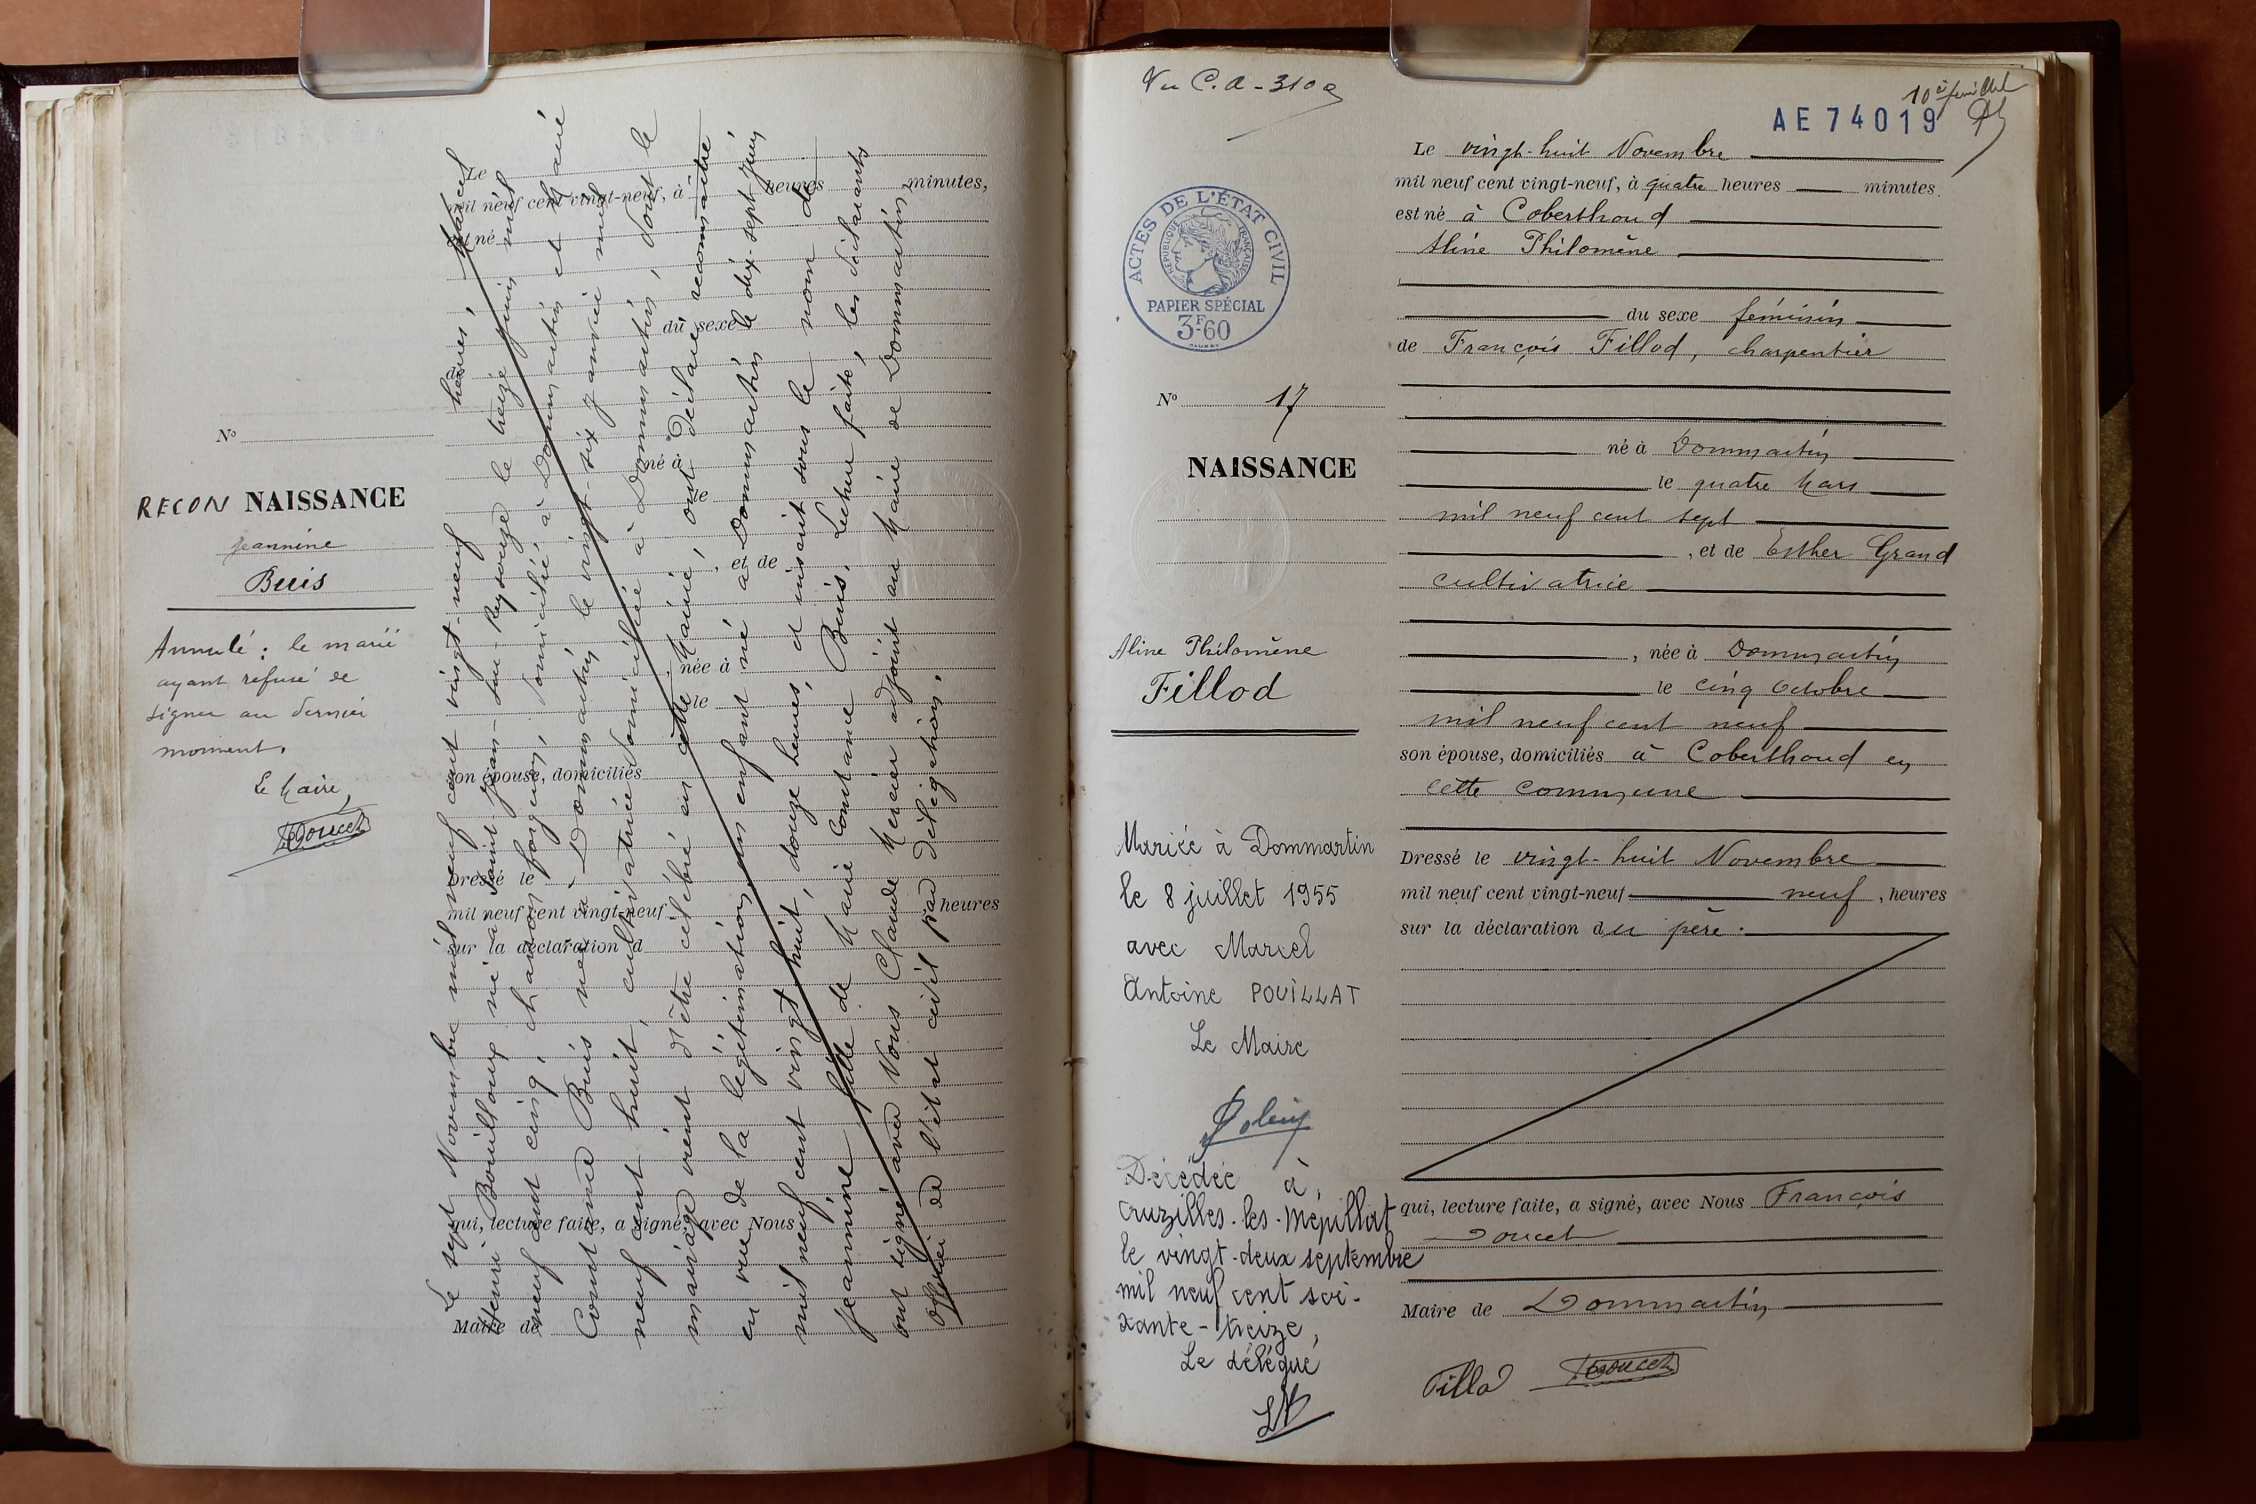 Le
mil neuf cent vingt-neuf, à heures minutes,
est né
du sexe
de
né à
le
, et de
, née à
le
son épouse, domiciliés
Dressé le
mil neuf cent vingt-neuf heures
sur la déclaration d
qui, lecture faite, a signé, avec Nous
Maire de
No
RECON NAISSANCE
Jeannine
Buis
Annulé : le marié
ayant refusé de
signer au dernier
moment.
Le Maire,
Doucet
Le sept Novembre mil neuf cent vingt-neuf heures, Marcel
Henri Bouilloux né à Saint-Jean-sur-Reyssouze le treize juin mil
neuf cent cinq, charron forgeron, domicilié à Dommartin et Marie
Constance Buis née à Dommartin le vingt-six janvier mil
neuf cent huit, cultivatrice domiciliée à Dommartin, dont le
mariage vient d'être célébré en cette Mairie, ont déclaré reconnaître
en vue de la légitimation, un enfant né à Dommartin le dix-sept juin
mil neuf cent vingt huit, douze heures, et inscrit sous le nom de
Jeannine fille de Marie Constance Buis. Lecture faite, les déclarants
ont signé avec Nous Claude Mercier adjoint au Maire de Dommartin,
officier de l'état civil par délégation.
Vu C.A - 310
10è feuillet
AE74019
ACTES DE L'ÉTAT CIVIL
RÉPUBLIQUE FRANÇAISE
PAPIER SPÉCIAL
3F60
No 17
NAISSANCE
Aline Philomène
Fillod
Mariée à Dommartin
le 8 juillet 1955
avec Marcel
Antoine POUILLAT
Le Maire
Décédée à,
Cruzilles-les-Mépillat
le vingt-deux septembre
mil neuf cent soi-
xante-treize,
Le délégué
Le vingt-huit Novembre
mil neuf cent vingt-neuf, à quatre heures minutes.
est né à Coberthoud
Aline Philomène
du sexe féminin
de François Fillod, charpentier
né à Dommartin
le quatre Mars
mil neuf cent sept
, et de Esther Grand
cultivatrice
, née à Dommartin
le cinq Octobre
mil neuf cent neuf
son épouse, domiciliés à Coberthoud en
cette commune
Dressé le vingt-huit Novembre
mil neuf cent vingt-neuf neuf, heures
sur la déclaration du père.
qui, lecture faite, a signé, avec Nous François
Doucet
Maire de Dommartin
Fillod Doucet